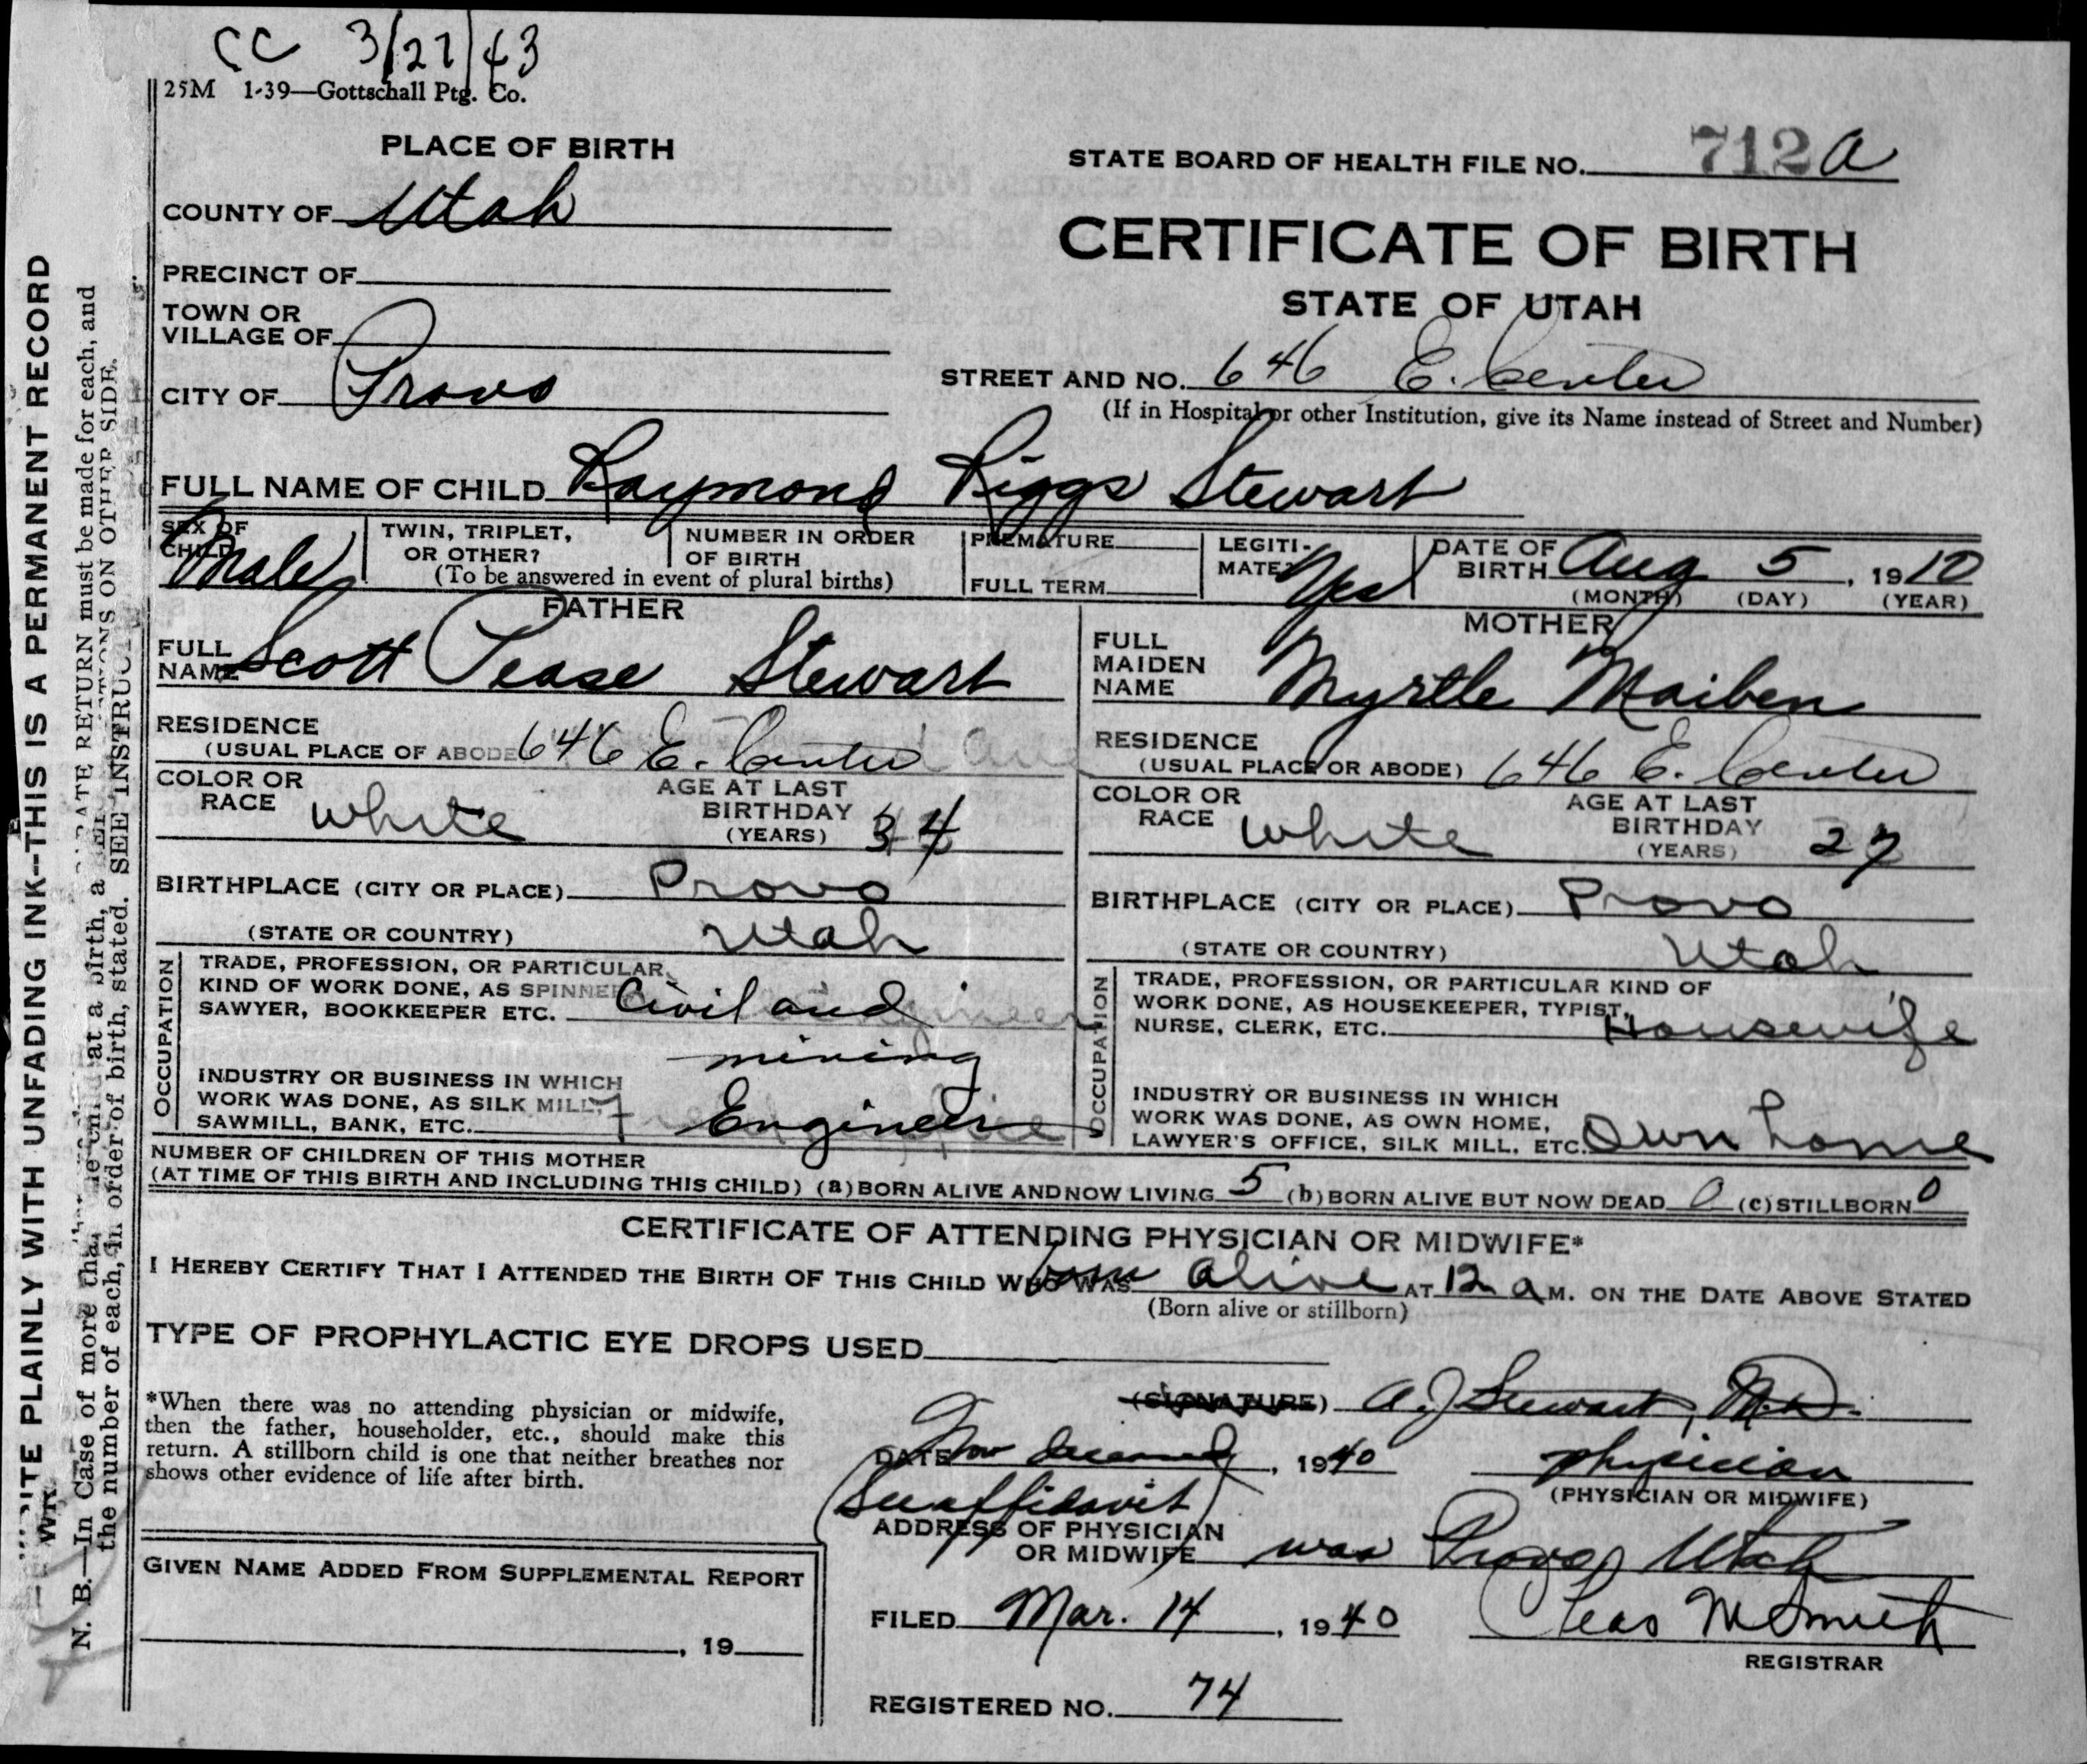 CC 3/27/43
25M 1-39—Gottschall Ptg. Co.
PLACE OF BIRTH
STATE BOARD OF HEALTH FILE NO. 712 a
COUNTY OF Utah
CERTIFICATE OF BIRTH
PRECINCT OF
STATE OF UTAH
TOWN OR
VILLAGE OF
CITY OF Provo
STREET AND NO. 646 E. Center
(If in Hospital or other Institution, give its Name instead of Street and Number)
FULL NAME OF CHILD Raymond Riggs Stewart
SEX OF CHILD Male
TWIN, TRIPLET, OR OTHER?
NUMBER IN ORDER OF BIRTH
(To be answered in event of plural births)
PREMATURE
FULL TERM
LEGITIMATE? Yes
DATE OF BIRTH Aug 5, 1910
(MONTH) (DAY) (YEAR)
FATHER
FULL NAME Scott Pease Stewart
RESIDENCE
(USUAL PLACE OF ABODE 646 E. Center
COLOR OR RACE white
AGE AT LAST BIRTHDAY (YEARS) 34
BIRTHPLACE (CITY OR PLACE) Provo
(STATE OR COUNTRY) Utah
OCCUPATION
TRADE, PROFESSION, OR PARTICULAR
KIND OF WORK DONE, AS SPINNER
SAWYER, BOOKKEEPER ETC. Civil and
mining
INDUSTRY OR BUSINESS IN WHICH
WORK WAS DONE, AS SILK MILL,
SAWMILL, BANK, ETC. Engineer
MOTHER
FULL MAIDEN NAME Myrtle Maiben
RESIDENCE
(USUAL PLACE OR ABODE) 646 E. Center
COLOR OR RACE white
AGE AT LAST BIRTHDAY (YEARS) 27
BIRTHPLACE (CITY OR PLACE) Provo
(STATE OR COUNTRY) Utah
OCCUPATION
TRADE, PROFESSION, OR PARTICULAR KIND OF
WORK DONE, AS HOUSEKEEPER, TYPIST,
NURSE, CLERK, ETC. Housewife
INDUSTRY OR BUSINESS IN WHICH
WORK WAS DONE, AS OWN HOME,
LAWYER'S OFFICE, SILK MILL, ETC. Own home
NUMBER OF CHILDREN OF THIS MOTHER
(AT TIME OF THIS BIRTH AND INCLUDING THIS CHILD) (a) BORN ALIVE AND NOW LIVING 5 (b) BORN ALIVE BUT NOW DEAD 0 (c) STILLBORN 0
CERTIFICATE OF ATTENDING PHYSICIAN OR MIDWIFE*
I HEREBY CERTIFY THAT I ATTENDED THE BIRTH OF THIS CHILD WHO WAS born alive AT 12 a M. ON THE DATE ABOVE STATED
(Born alive or stillborn)
TYPE OF PROPHYLACTIC EYE DROPS USED
*When there was no attending physician or midwife,
then the father, householder, etc., should make this
return. A stillborn child is one that neither breathes nor
shows other evidence of life after birth.
(SIGNATURE) A. J Stewart, M.D.
DATE Now deceased, 1940 physician
(PHYSICIAN OR MIDWIFE)
(See affidavit)
ADDRESS OF PHYSICIAN
OR MIDWIFE was Provo, Utah
GIVEN NAME ADDED FROM SUPPLEMENTAL REPORT
, 19
FILED Mar. 14, 1940
REGISTRAR
REGISTERED NO. 74
WRITE PLAINLY WITH UNFADING INK--THIS IS A PERMANENT RECORD
N. B.—In Case of more than one child at a birth, a SEPARATE RETURN must be made for each, and
the number of each, in order of birth, stated. SEE INSTRUCTIONS ON OTHER SIDE.